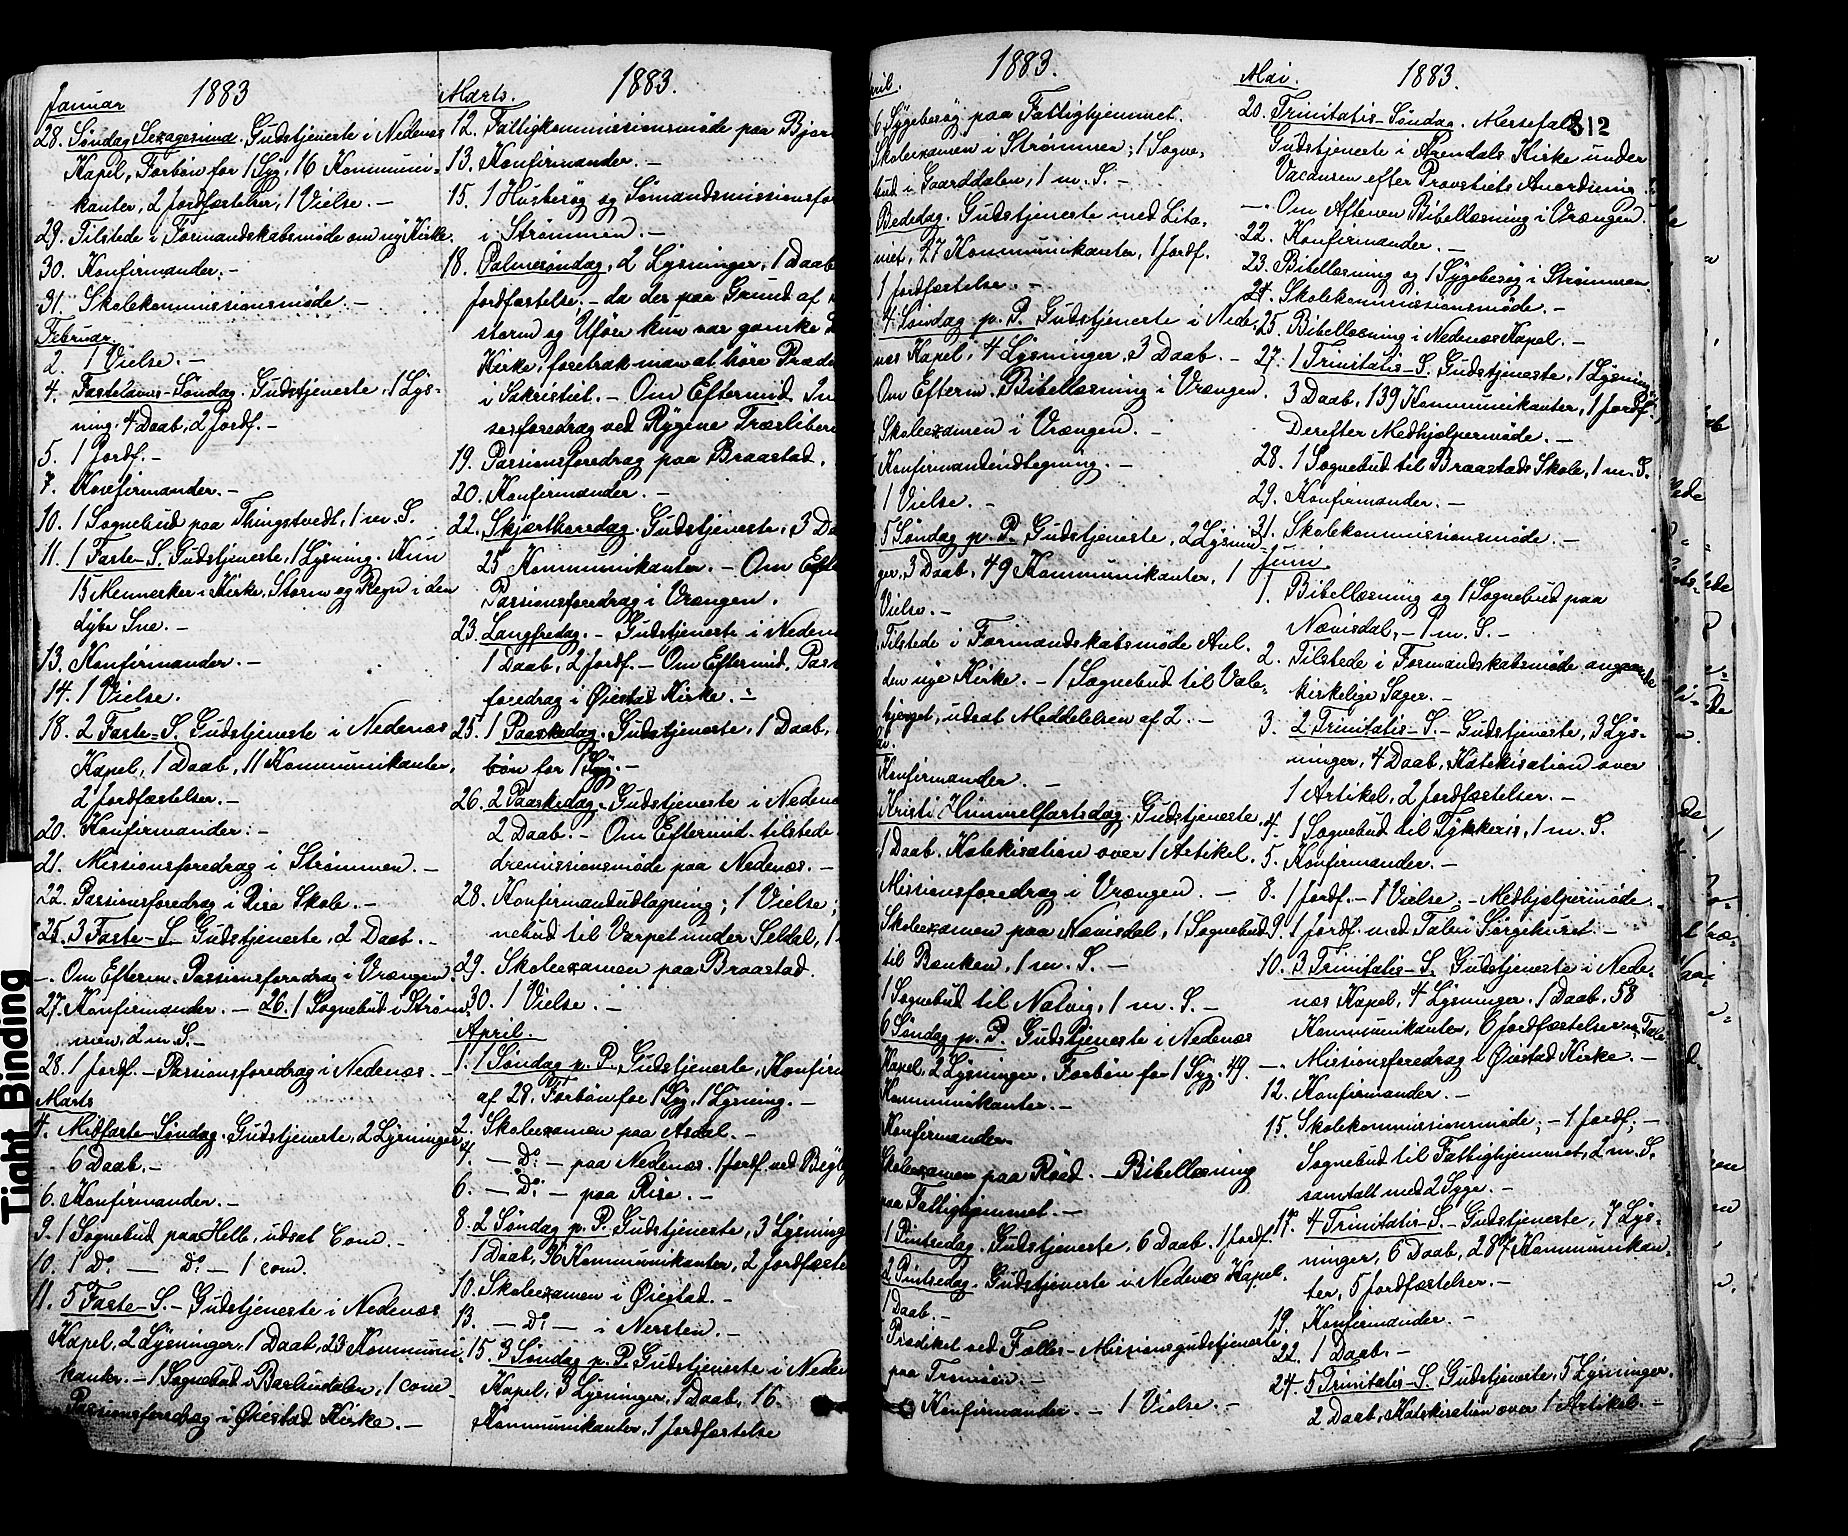 Januar 1883
28. Søndag Sexagesima. Gudstjeneste i Nedenæs
Kapel, Forbøn for 1 Syg, 16 Kommuni-
kanter, 2 Jordfæstelser, 1 Vielse. —
29. Tilstede i Formandskabsmøde om ny Kirke.
30. Konfirmander. —
31. Skolekommissionsmøde. —
Februar
2. 1 Vielse. —
4. Fastelavns-Søndag. Gudstjeneste, 1 Lys-
ning, 4 Daab, 2 Jordf. —
5. 1 Jordf. —
7. Konfirmander. —
10. 1 Sognebud paa Thingstvedt, 1 m. S.
11. 1 Faste-S. Gudstjeneste, 1 Lysning. Kun
15 Mennesker i Kirke, Storm og Regn i den
dybe Sne. —
13. Konfirmander. —
14. 1 Vielse.
18. 2 Faste-S. Gudstjeneste i Nedenæs
Kapel, 1 Daab, 11 Kommunikanter,
2 Jordfæstelser. —
20. Konfirmander. —
21. Missionsforedrag i Strømmen. —
22. Passionsforedrag i Rise Skole. —
25. 3 Faste-S. Gudstjeneste, 2 Daab. —
—. Om Efterm. Passionsforedrag i Vrængen
27. Konfirmander. — 26. 1 Sognebud i Strøm-
men, 2 m. S. —
28. 1 Jordf. — Passionsforedrag i Nedenæs. —
Marts
4. Midfaste-Søndag. Gudstjeneste, 2 Lysninger,
6 Daab. —
6. Konfirmander. —
9. 1 Sognebud paa Helle, udsat Com. —
10. 1 Do — Do — 1 com.
11. 5 Faste-S. — Gudstjeneste i Nedenæs
Kapel, 2 Lysninger, 1 Daab, 23 Kommuni-
kanter. — 1 Sognebud i , 1 com.
Passionsforedrag i Øiestad Kirke. —
Marts. 1883.
12. Fattigkommissionsmøde paa Bjor
13. Konfirmander. —
15. 1 Husbesøg og Sømandsmissionsfo
i Strømmen. —
18. Palmesøndag, 2 Lysninger, 1 Daab
Jordfæstelse. — da der paa Grund af
storm og Uføre kun var ganske
Kirke, foretrak man at høre Præd
i Sakristiet. — Om Eftermid.
sesforedrag ved Rygene Træsliberi
19. Passionsforedrag paa Braastad.
20. Konfirmander. —
22. Skjærthorsdag. Gudstjeneste, 3 Da
25 Kommunikanter. — Om Efte
Passionsforedrag i Vrængen.
23. Langfredag. — Gudstjeneste i Nedenæ
1 Daab, 2 Jordf. — Om Eftermid. Pas
foredrag i Øiestad Kirke. —
25. 1 Paaskedag. Gudstjeneste, 1 Daab,
bøn for 1 Syg. —
26. 2 Paaskedag. Gudstjeneste i Nedenæ
2 Daab. — Om Eftermid. tilstede
dremissionsmøde paa Nedenæs. —
28. Konfirmandudtagning; 1 Vielse;
nebud til Varpet under Seldal, 1
29. Skoleexamen paa Braastad.
30. 1 Vielse. —
April.
1. 1 Søndag p. P. Gudstjeneste, Konfirm
af 28, Forbøn for 1 Syg, 1 Lysning. —
2. Skoleexamen paa Asdal. —
4. — Do — paa Nedenæs. 1 Jordf. ved
6. — Do — paa Rise. —
8. 2 Søndag p. P. Gudstjeneste, 3 Lysning
1 Daab, 96 Kommunikanter, 2 Jordfæste
10. Skoleexamen i Øiestad. —
13. — Do — i Nersten. —
15. 3 Søndag p. P. Gudstjeneste i Neden
Kapel, 3 Lysninger, 1 Daab, 16
Kommunikanter, 1 Jordfæstelse
ril. 1883.
6 Sygebesøg paa Fattighjemmet.
Skoleexamen i Strømmen; 1 Sogne-
bud i Gaarddalen, 1 m. S. —
Bededag. Gudstjeneste med Lita-
niet, 27 Kommunikanter, 1 Jordf.
1 Jordfæstelse. —
4 Søndag p. P. Gudstjeneste i Nede-
næs Kapel, 4 Lysninger, 3 Daab. —
Om Efterm. Bibellæsning i Vrængen.
Skoleexamen i Vrængen. —
Konfirmandindtegning. —
1 Vielse. —
5 Søndag p. P. Gudstjeneste, 2 Lysnin-
ger, 3 Daab, 49 Kommunikanter, 1
Vielse. —
Tilstede i Formandskabsmøde Anl.
den nye Kirke. — 1 Sognebud til Vole-
bjerget, udsat Meddelelsen af 2. —
Konfirmander. —
Kristi Himmelfartsdag. Gudstjeneste,
1 Daab. Katekisation over 1 Artikel.
Missionsforedrag i Vrængen. —
Skoleexamen paa Nævisdal, 1 Sognebud
til Bænken, 1 m. S. —
1 Sognebud til Natvig, 1 m. S. —
6 Søndag p. P. Gudstjeneste i Nedenæs
Kapel, 2 Lysninger, Forbøn for 1 Syg. 49
Kommunikanter. —
Konfirmander
Skoleexamen paa Røed. — Bibellæsning
paa Fattighjemmet. —
1 Pintsedag. Gudstjeneste, 6 Daab, 1 Jordf.
2 Pintsedag. Gudstjeneste i Nedenæs Kapel,
1 Daab. —
Prædiket ved Fælles-Missionsgudstjeneste
paa Tromøen. —
Konfirmander. — 1 Vielse. —
Mai. 1883.
312
20. Trinitatis-Søndag. Messefald.
Gudstjeneste i Arendals Kirke under
Vacansen efter Provstiets Anordning.
—. Om Aftenen Bibellæsning i Vrængen.
22. Konfirmander. —
23. Bibellæsning og 1 Sygebesøg i Strømmen
24. Skolekommissionsmøde. —
25. Bibellæsning i Nedenæs Kapel. —
27. 1 Trinitatis-S. Gudstjeneste, 1 Lysning,
3 Daab, 139 Kommunikanter, 1 Jordf.
Derefter Medhjælpermøde. —
28. 1 Sognebud til Braastads Skole, 1 m. S.
29. Konfirmander. —
31. Skolekommissionsmøde. —
Juni
1. Bibellæsning og 1 Sognebud paa
Nævisdal, — 1 m. S. —
2. Tilstede i Formandskabsmøde angaaende
kirkelige Sager. —
3. 2 Trinitatis-S. — Gudstjeneste, 3 Lys-
ninger, 4 Daab, Katekisation over
1 Artikel, 2 Jordfæstelser. —
4. 1 Sognebud til Tykkeris, 1 m. S.
5. Konfirmander. —
8. 1 Jordf. — 1 Vielse, — Medhjælpermøde.
9. 1 Jordf. med Tale i Sørgehuset —
10. 3 Trinitatis-S. Gudstjeneste i Nede-
næs Kapel, 4 Lysninger, 1 Daab, 58
Kommunikanter, 6 Jordfæstelser m. Tale
—. Missionsforedrag i Øiestad Kirke. —
12. Konfirmander. —
15. Skolekommissionsmøde; — 1 Jordf; —
Sognebud til Fattighjemmet, 2 m. S.
samtalt med 2 Syge. —
17. 4 Trinitatis-S. — Gudstjeneste, 7 Lys-
ninger, 6 Daab, 287 Kommunikan-
ter, 5 Jordfæstelser. —
19. Konfirmander. —
22. 1 Daab. —
24. 5 Trinitatis-S. Gudstjeneste, 5 Lysninger,
2 Daab, Katekisation over 1 Artikel. —
Tight Binding